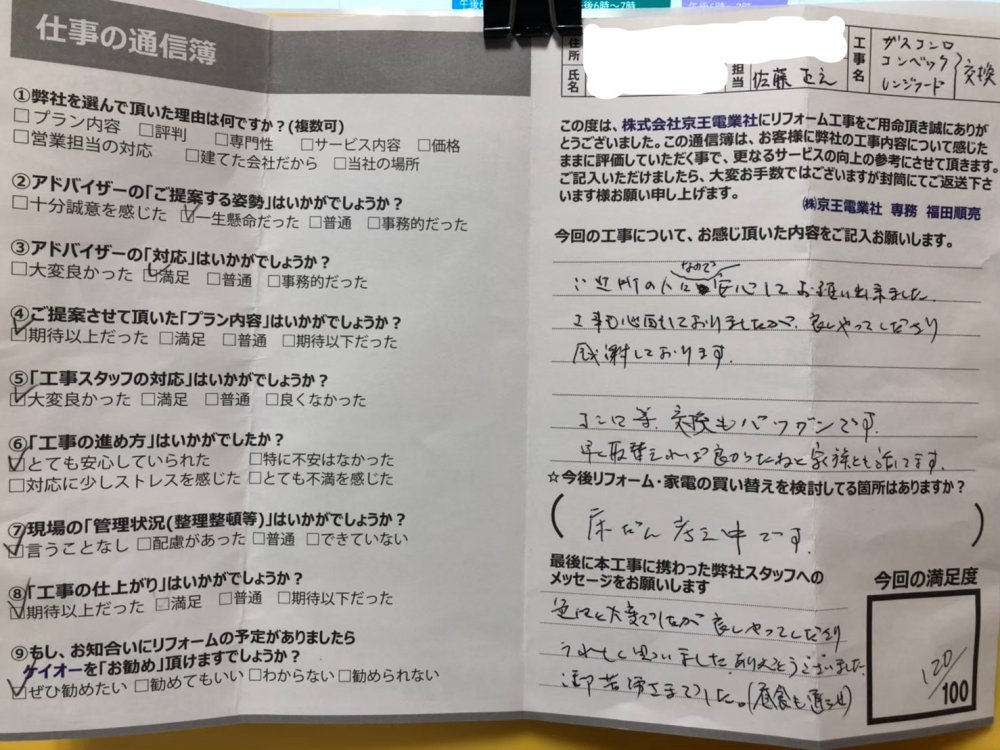 午後6時~7時
仕事の通信簿
①弊社を選んで頂いた理由は何ですか?(複数可)
□プラン内容 □評判 □専門性 □サービス内容 □価格
□営業担当の対応 □建てた会社だから □当社の場所
②アドバイザーの「ご提案する姿勢」はいかがでしょうか?
□十分誠意を感じた ☑一生懸命だった □普通 □事務的だった
③アドバイザーの「対応」はいかがでしょうか?
□大変良かった ☑満足 □普通 □事務的だった
④ご提案させて頂いた「プラン内容」はいかがでしょうか?
☑期待以上だった □満足 □普通 □期待以下だった
⑤「工事スタッフの対応」はいかがでしょうか?
☑大変良かった □満足 □普通 □良くなかった
⑥「工事の進め方」はいかがでしたか?
☑とても安心していられた □特に不安はなかった
□対応に少しストレスを感じた □とても不満を感じた
⑦現場の「管理状況(整理整頓等)」はいかがでしょうか?
☑言うことなし □配慮があった □普通 □できていない
⑧「工事の仕上がり」はいかがでしょうか?
☑期待以上だった □満足 □普通 □期待以下だった
⑨もし、お知合いにリフォームの予定がありましたら
ケイオーを「お勧め」頂けますでしょうか?
☑ぜひ勧めたい □勧めてもいい □わからない □勧められない
住所
氏名
担当 佐藤
工事名 ガスコンロ
コンベック
レンジフード
交換
この度は、株式会社京王電業社にリフォーム工事をご用命頂き誠にありが
とうございました。この通信簿は、お客様に弊社の工事内容について感じた
ままに評価していただく事で、更なるサービスの向上の参考にさせて頂きます。
ご記入いただけましたら、大変お手数ではございますが封筒にてご返送下さ
います様お願い申し上げます。
㈱京王電業社 専務 福田順亮
今回の工事について、お感じ頂いた内容をご記入お願いします。
ご近所の人なので安心してお願い出来ました。
工事も心配しておりましたが、良しやってくださり
感謝しております。
コンロ等、交換もバツグンです。
早く取替えれば良かったねと家族とも話してます。
☆今後リフォーム・家電の買い替えを検討してる箇所はありますか?
(床など 考え中です。)
最後に本工事に携わった弊社スタッフへの
メッセージをお願いします
大変でしたが 良しやってくださり
うれしく思いました。ありがとうございました
御苦労さまでした。(昼食も
今回の満足度
120/100